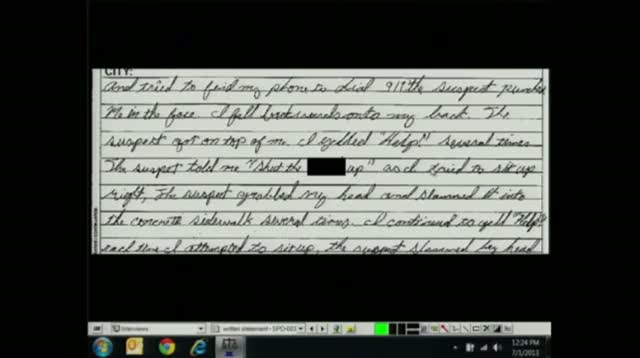 CITY:
and tried to find my phone to dial 911 the suspect punched
me in the face. I fell backwards onto my back. The
suspect got on top of me. I yelled "Help!" several times.
The suspect told me "Shut the up" as I tried to sit up
right, The suspect grabbed my head and slammed it into
the concrete sidewalk several times. I continued to yell "Help!"
each time I attempted to sit up, the suspect slammed my head
Interviews
written statement - SPD-003
12:24 PM
7/1/2013